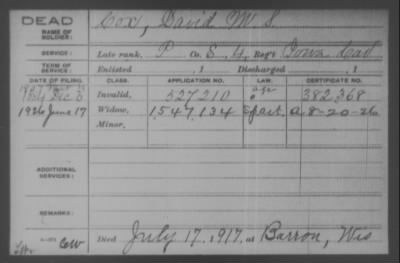 DEAD
NAME OF SOLDIER: Cox, David M. S.
SERVICE: Late rank, P Co. S, 4, Reg't Iowa Cav
TERM OF SERVICE: Enlisted , 1 Discharged , 1
DATE OF FILING. CLASS. APPLICATION NO. LAW. CERTIFICATE NO.
Dec Invalid, 527210 382,368
1926 June 17 Widow, 1,547,134 a 8-20-26
Minor,
ADDITIONAL SERVICES:
REMARKS:
Died July 17, 1917, at Barron, Wis